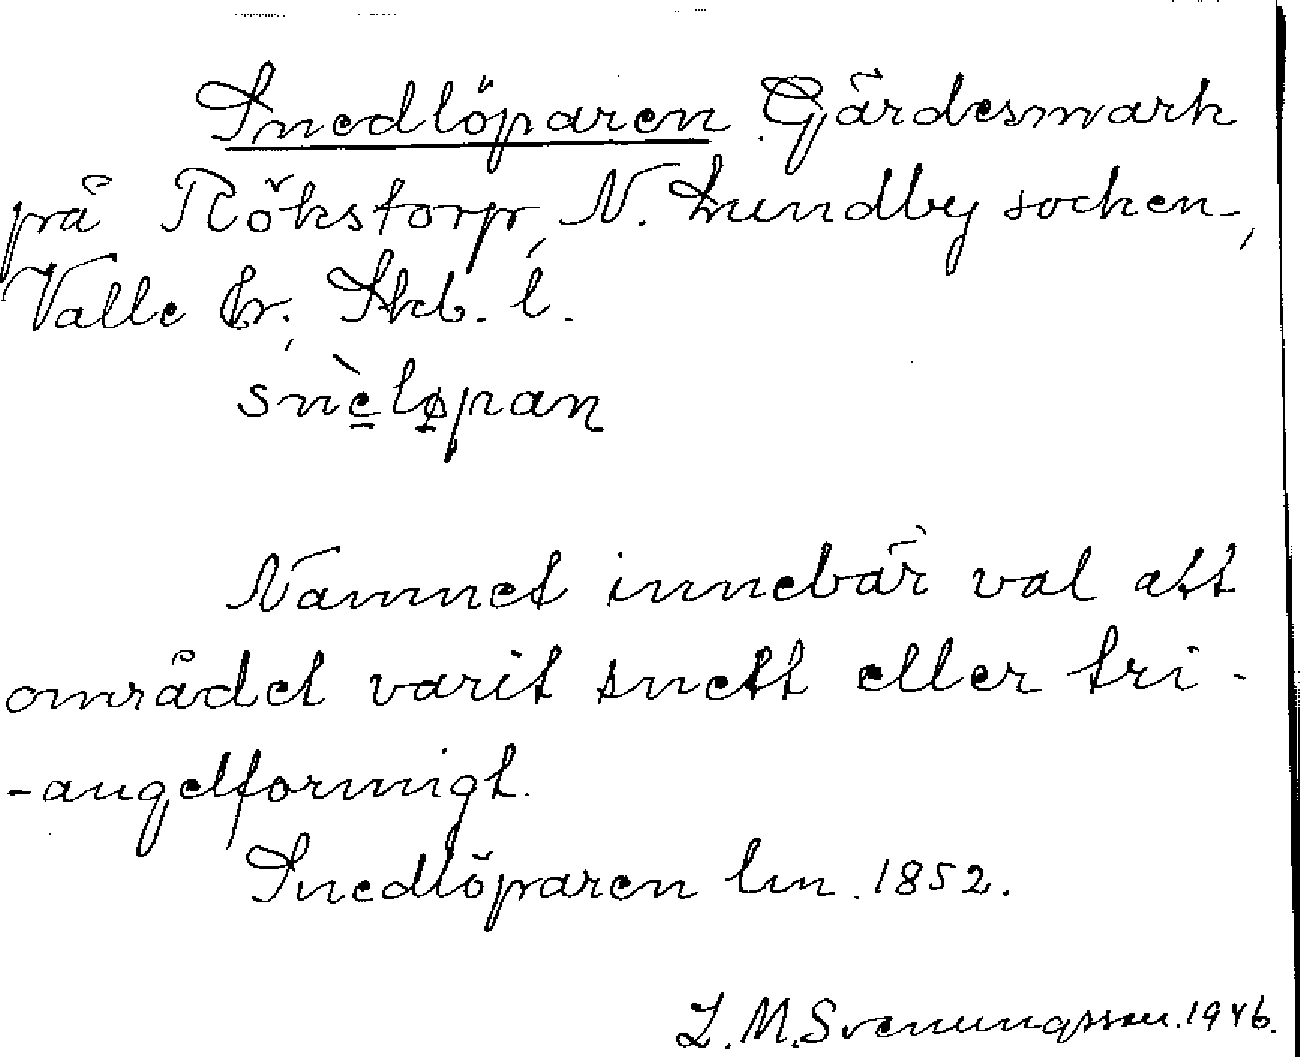 Snedlöparen Gärdesmark
på Rökstorp, N. Lundby socken,
Valle hr., Skb. l.
snèløpan
Namnet innebär väl att
området varit snett eller tri-
-angelformigt.
Snedlöparen lm. 1852.
L. M. Svenungsson. 1946.